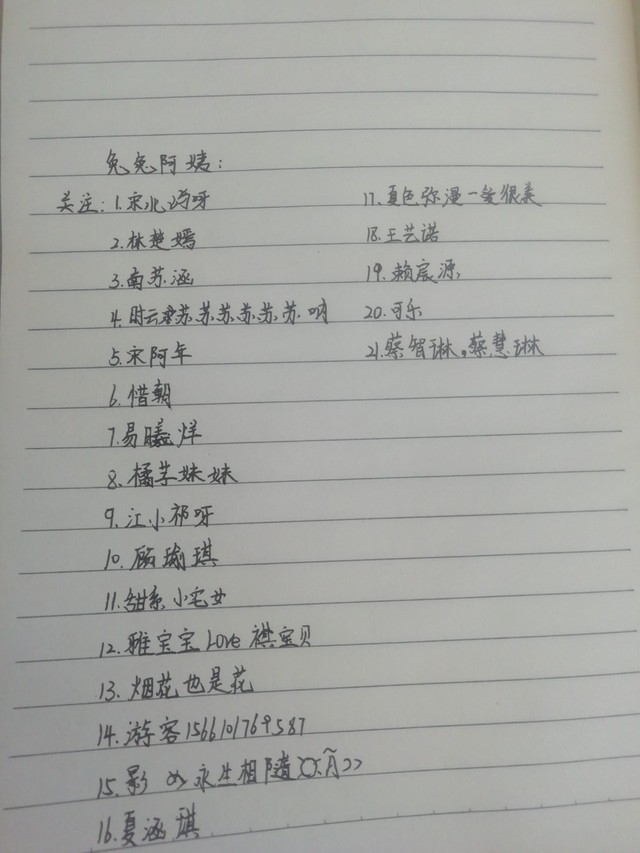 兔兔阿姨:
关注:1.宋北沔呀
2.林楚嫣
3.南苏涵
4.时云柔苏苏苏苏苏苏呐
5.宋阿年
6.惜朝
7.易曦烊
8.橘芓妹妹
9.江小祁呀
10.顾瑜琪
11.甜系小宅女
12.雅宝宝Love祺宝贝
13.烟花也是花
14.游客1566101769587
15.影 永生相随
16.夏涵琪
17.夏色弥漫一一很美
18.王艺诺
19.赖宸源
20.可乐
21.蔡智琳,蔡慧琳